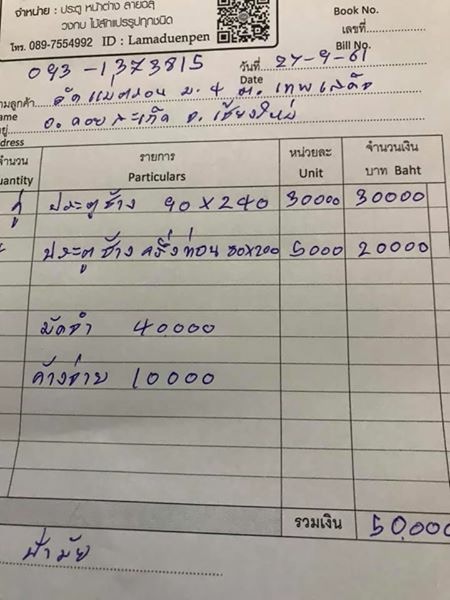 จำหน่าย : ประตู หน้าต่าง ลายฉลุ
วงกบ ไม้สักแปรรูปทุกชนิด
โทร. 089-7554992 ID : Lamaduenpen
Book No.
เลขที่
Bill No.
093-1373815
วันที่ 27-9-61
Date
นามลูกค้า วัดแม่ ม. 4 ต. เทพเสด็จ
Name
ที่อยู่ อ. ดอยสะเก็ด จ. เชียงใหม่
Address
จำนวน รายการ หน่วยละ จำนวนเงิน
Quantity Particulars Unit บาท Baht
คู่ ประตูช้าง 90X240 30000 30000
ประตูช้าง ครึ่งท่อน 80X200 5000 20000
มัดจำ 40,000
ค้างจ่าย 10000
รวมเงิน 50,000